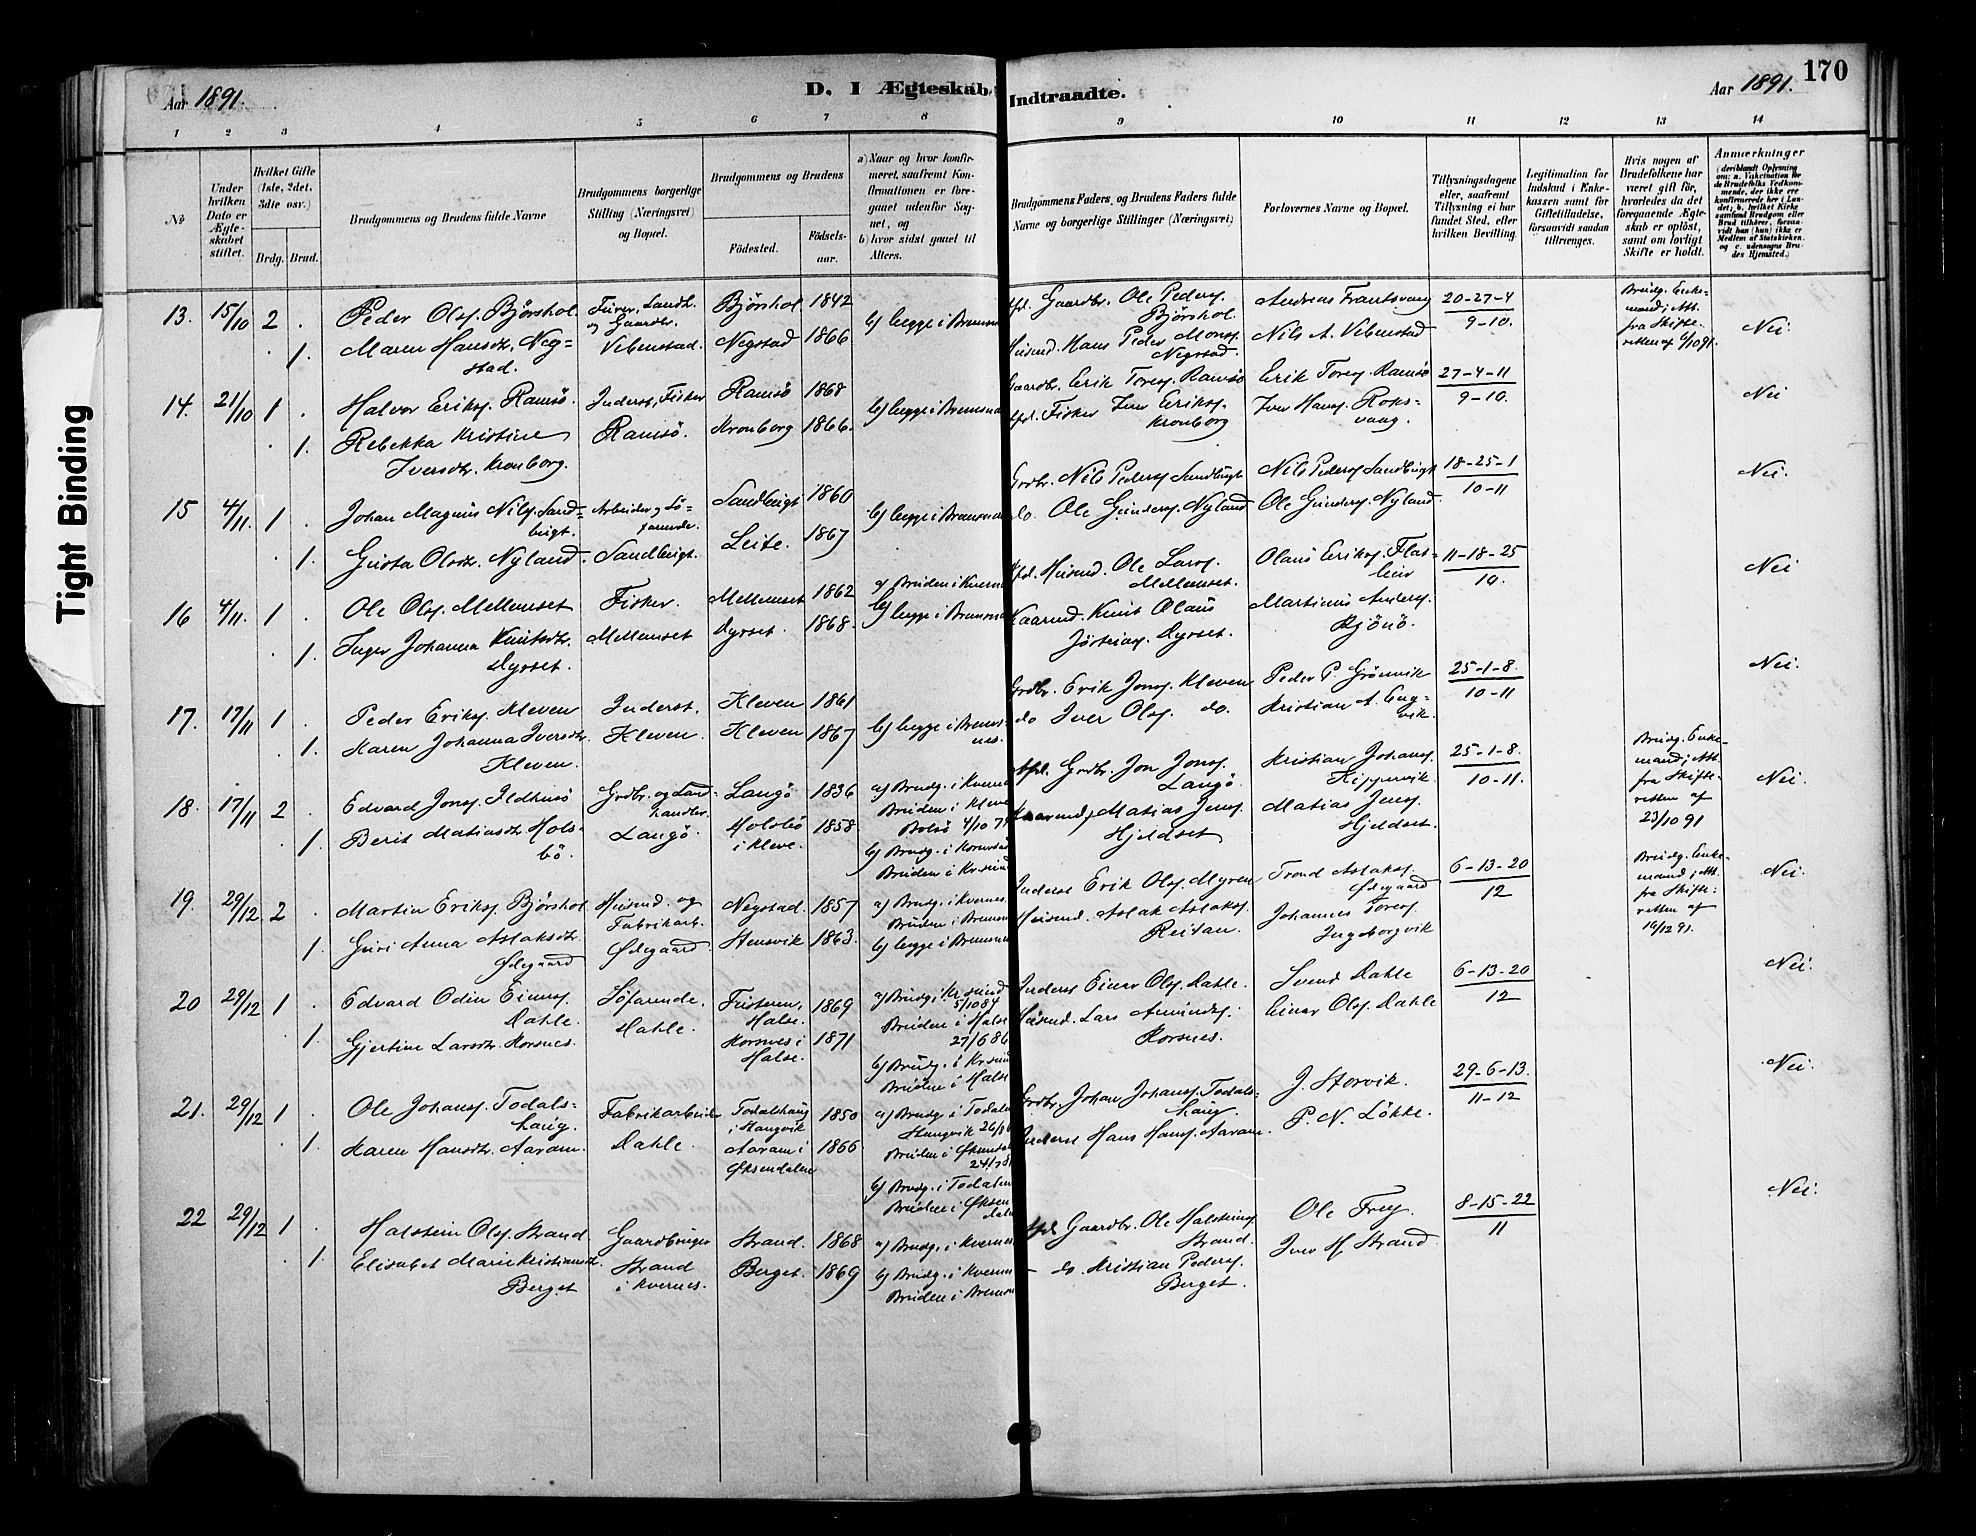 Tight Binding
170
Aar 1891.
D. I Ægteskab Indtraadte.
Aar 1891.
1 2 3 4 5 6 7 8 9 10 11 12 13 14
No
Under hvilken Dato er Ægteskabet stiftet.
Hvilket Gifte (1ste, 2det, 3die osv.)
Brdg. Brud.
Brudgommens og Brudens fulde Navne
Brudgommens borgerlige Stilling (Næringsvei) og Bopæl.
Brudgommens og Brudens
Födested.
Födselsaar.
a) Naar og hvor konfirmeret, saafremt Konfirmationen er foregaaet udenfor Sognet, og
b) hvor sidst gaaet til Alters.
Brudgommens Faders, og Brudens Faders fulde Navne og borgerlige Stillinger (Næringsvei)
Forlovernes Navne og Bopæl.
Tillysningsdagene eller, saafremt Tillysning ei har fundet Sted, efter hvilken Bevilling.
Legitimation for Indskud i Enkekassen samt for Giftetilladelse, forsaavidt saadan tiltrænges.
Hvis nogen af Brudefolkene har været gift för, hvorledes da det foregaaende Ægteskab er oplöst, samt om lovligt Skifte er holdt.
Anmærkninger
(deriblandt Oplysning om: a. Vakcination for de Brudefolks Vedkommende, der ikke ere konfirmerede her i Landet; b. hvilket Kirkesamfund Brudgom eller Brud tilhörer, forsaavidt han (hun) ikke er Medlem af Statskirken, og c. udensogns Brudes Hjemsted.)
13. 15/10 2 . Peder Ols. Björshol. Björshol 1842 b) begge i Bremsn
Gaardbr. Ole Peders. Björshol. Andreas Frantsvaag 20-27-4 / 9-10. Brudg. Enkemand; Att. fra Skifteretten af 6/10 91. Nei.
. 1. Maren Hansdtr. Negstad. Vebenstad. Negstad 1866
Husmd. Hans Peder Mons. Negstad. Nils A. Vebenstad
14. 21/10 1 . Halvor Eriks. Ramsö. Inderst, Fisker Ramsö 1868 b) begge i Bremsn
Gaardbr. Erik Tores. Ramsö Erik Tores. Ramsö 27-4-11 / 9-10. Nei
. 1. Rebekka Kristine Iversdtr. Kronborg. Ramsö. Kronborg 1866.
Fisker Iver Eriks. Kronborg Iver Hans. Roksvaag.
15 4/11. 1 . Johan Magnus Nils. Sandbugt. Arbeider og Söfarende. Sandbugt 1860 b) begge i Bremsn
Grdbr. Nils Peders. Sandbugt Nils Peders. Sandbugt 18-25-1 / 10-11 Nei
. 1. Gusta Olsdtr. Nyland. Sandbugt. Leite. 1867
do. Ole Gunders. Nyland Ole Gunders. Nyland.
16 4/11. 1 . Ole Ols. Mellemset Fisker. Mellemset 1862 a) Bruden i Kvernes
Husmd. Ole Lars. Mellemset. Olaus Eriks. 11-18-25 / 10. Nei
. 1. Inger Johanna Knutsdtr. Dyrset. Mellemset Dyrset. 1868. b) begge i Bremsn
Knut Olaus Dyrset. Martinus Anders.
17. 17/11 1 . Peder Eriks. Kleven Inderst. Kleven 1861 b) begge i Bremsnes.
Grdbr. Erik Jons. Kleven Peder P. Grönvik 25-1-8. / 10-11 Nei.
. 1. Karen Johanna Iversdtr. Kleven. Kleven. Kleven 1867
do Iver Ols. do. Kristian A. Engvik.
18. 17/11 2 . Edvard Jons. Ildhusö Grdbr. og Landhandler Langö 1836 a) Brudg. i Kvernes
Grdbr. Jon Jons. Langö. Kristian Johans. 25-1-8. / 10-11. Brudg. Enkemand; Att. fra Skifteretten af 23/10 91 Nei.
. 1. Berit Matiasdtr. Holsbö. Langö. Holsbö i Kleve. 1858. Bruden i Kleve Bolsö 4/10 7
Matias Jens. Hjeldset Matias Jens. Hjeldset.
b) Brudg. i
Bruden i Kr.sund
19. 29/12 2 . Martin Eriks. Björshol Husmd. og Fabrikarb. Negstad. 1857 a) Brudg. i Kvernes.
Inderst Erik Ols. Myren Trond Aslaks. Ødegaard 6-13-20 / 12 Brudg. Enkemand; Att. fra Skifteretten af 16/12 91. Nei.
1. Guri Anna Aslaksdtr. Ødegaard Ødegaard Stensvik 1863. Bruden i Bremsn b) begge i Bremsn
Husmd. Aslak Aslaks. Reitan. Johannes Tores. Ingeborgvik
20 29/12 1 . Edvard Odin Einars. Dahle. Söfarende. Halse. 1869 a) Brudg. i Kr.sund 5/10 84
Inderst Einar Ols. Dahle. Svend Dahle 6-13-20 / 12 Nei.
. 1. Gjertine Larsdtr. Korsnes. Dahle. Korsnes i Halse. 1871 Bruden i Halse 27/6 86
Husmd. Lars Amunds. Korsnes. Einar Ols. Dahle
b) Brudg. i Kr.sund
Bruden i Halse
21. 29/12 1 . Ole Johans. Todalshaug. Fabrikarbeider Todalshaug i Stangvik 1850 a) Brudg i Todalen Stangvik
Grdbr. Johan Johans. Todalshaug. J. Storvik. 29-6-13. / 11-12 Nei
. 1. Karen Hansdtr. Aaram. Dahle. Aaram i Øksendalen 1866 Bruden i Øksendal
Inderst Hans Hans. Aaram. P. N. Lökke.
b) Brudg. i Todalen
Bruden i Øksendalen
22 29/12 1 . Halstein Ols. Strand. Gaardbruger Strand. 1868 a) Brudg. i Kvernes
Gaardbr. Ole Halsteins. Strand. Ole Frey. 8-15-22 / 11 Nei.
. 1. Elisabet Marie Kristiansdtr. Berget Strand i Kvernes. Berget. 1869 b) Brudg. i Kvernes Bruden i Bremsn
do. Kristian Peders. Berget. Iver H. Strand.